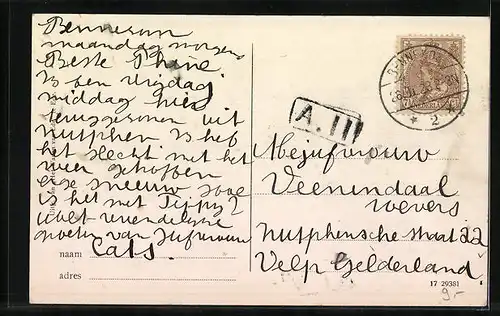 Bennekom
maandag morgen
Beste Phine
Ik ben Vrijdag
middag hier
teruggekomen uit
Zutphen ik heb
het slecht met het
weer getroffen
eise sneeuw hoe
is het met
wordt vriendelijke
groeten van Jufvrouw
Cats.
naam
adres
A. III
2
Mejufvrouw
Veenendaal
wevers
Zutphensche straat 22
Velp Gelderland.
17 29381
9.-